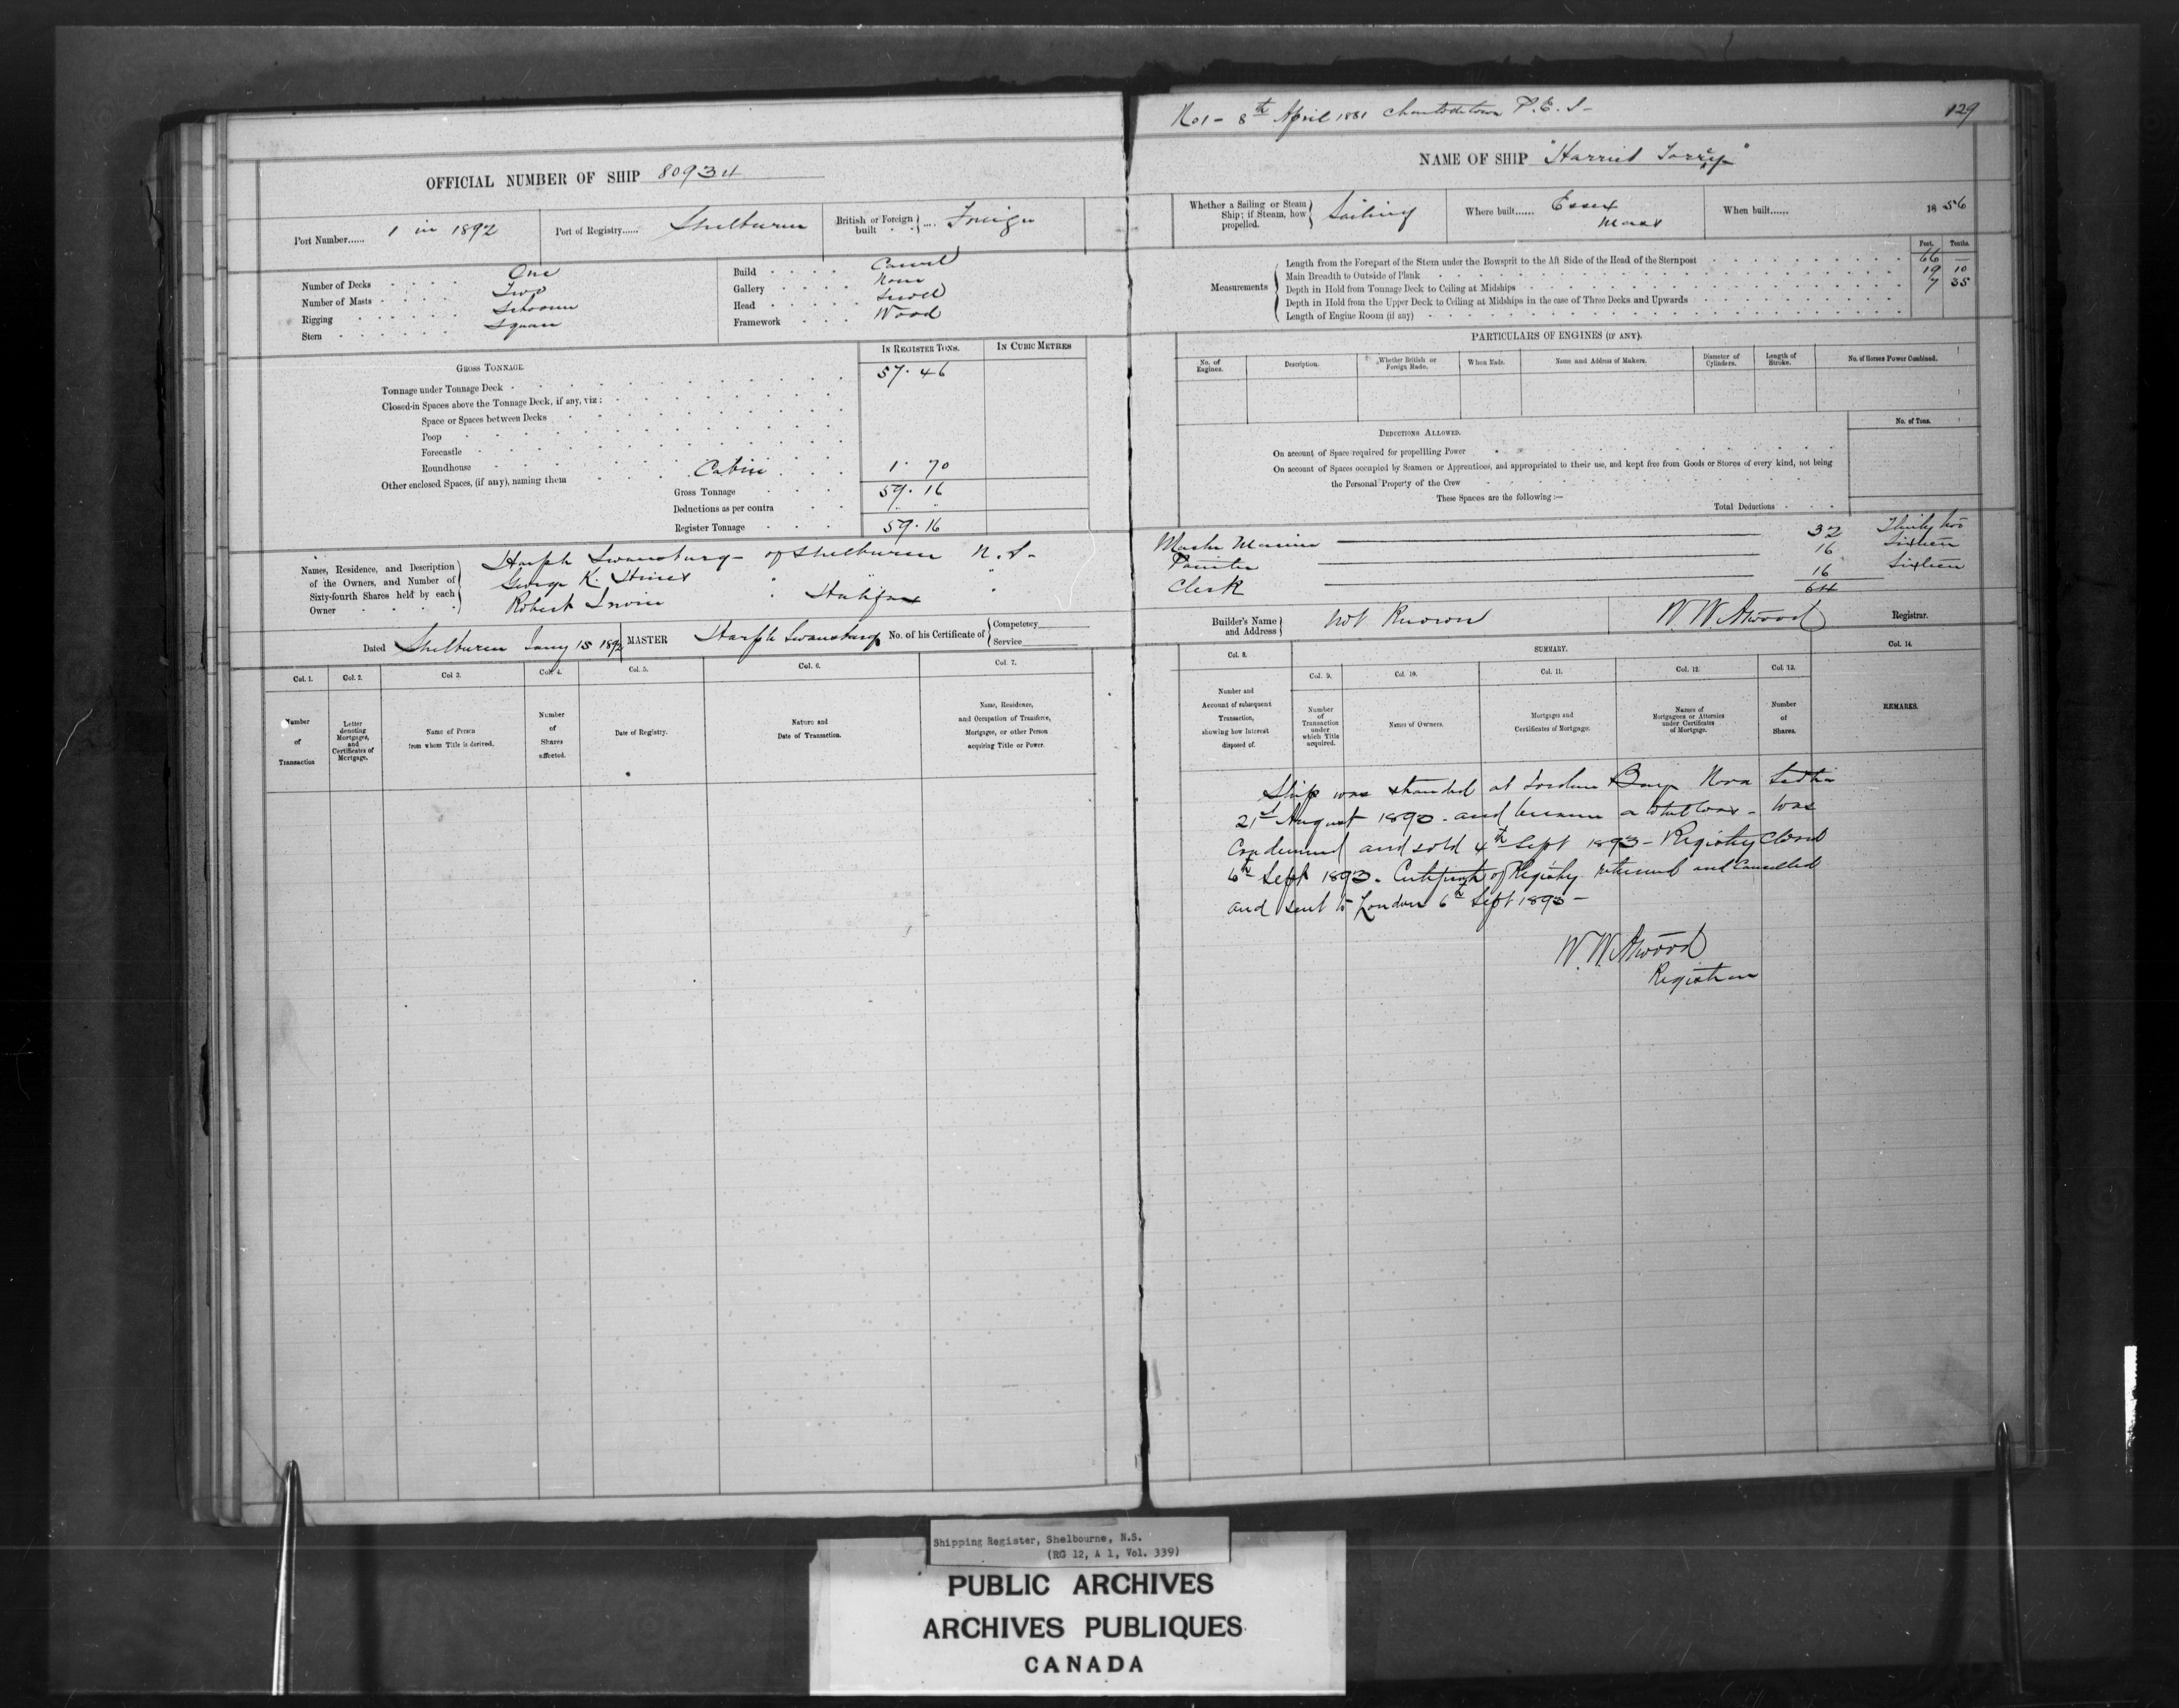 No 1 - 8th April 1881 Charlottetown P. E. I -
129
OFFICIAL NUMBER OF SHIP 80934
NAME OF SHIP "Harriet
Port Number...... 1 in 1892
Port of Registry...... Shelburne
British or Foreign built .... Foreign
Whether a Sailing or Steam Ship; if Steam, how propelled. Sailing
Where built...... Essex Mass
When built...... 1856
Number of Decks One
Number of Masts Two
Rigging Schooner
Stern Square
Build Carvel
Gallery None
Head
Framework Wood
Feet. Tenths.
Measurements
Length from the Forepart of the Stem under the Bowsprit to the Aft Side of the Head of the Sternpost 66 —
Main Breadth to Outside of Plank 19 10
Depth in Hold from Tonnage Deck to Ceiling at Midships 7 35
Depth in Hold from the Upper Deck to Ceiling at Midships in the case of Three Decks and Upwards
Length of Engine Room (if any)
GROSS TONNAGE
IN REGISTER TONS. IN CUBIC METRES
Tonnage under Tonnage Deck 57.46
Closed-in Spaces above the Tonnage Deck, if any, viz:
Space or Spaces between Decks
Poop
Forecastle
Roundhouse
Other enclosed Spaces, (if any), naming them Cabin 1.70
Gross Tonnage 59.16
Deductions as per contra
Register Tonnage 59.16
PARTICULARS OF ENGINES (IF ANY).
No. of Engines. Description. Whether British or Foreign Made. When Made. Name and Address of Makers. Diameter of Cylinders. Length of Stroke. No. of Horses Power Combined.
DEDUCTIONS ALLOWED.
No. of Tons.
On account of Space required for propelling Power
On account of Spaces occupied by Seamen or Apprentices, and appropriated to their use, and kept free from Goods or Stores of every kind, not being
the Personal Property of the Crew
These Spaces are the following:—
Total Deductions
Names, Residence, and Description of the Owners, and Number of Sixty-fourth Shares held by each Owner
Swansburg - of Shelburne N. S- Master Mariner 32 Thirty two
George K. " " Painter 16 Sixteen
Robert Irwin " Halifax " Clerk 16 Sixteen
64
Dated Shelburne Jany 15 1892
MASTER Swansburg No. of his Certificate of Competency Service
Builder's Name and Address Not Known
W. W. Atwood Registrar.
Col. 1. Col. 2. Col. 3. Col. 4. Col. 5. Col. 6. Col. 7.
Number of Transaction
Letter denoting Mortgages, and Certificates of Mortgage.
Name of Person from whom Title is derived.
Number of Shares affected.
Date of Registry.
Nature and Date of Transaction.
Name, Residence, and Occupation of Transferee, Mortgagee, or other Person acquiring Title or Power.
Col. 8. SUMMARY. Col. 14.
Col. 9. Col. 10. Col. 11. Col. 12. Col. 13.
Number and Account of subsequent Transaction, showing how Interest disposed of.
Number of Transaction under which Title acquired.
Names of Owners.
Mortgages and Certificates of Mortgage.
Names of Mortgagees or Attornies under Certificates of Mortgage.
Number of Shares.
REMARKS.
Ship was stranded at Jordan Bay Nova Scotia
21st August 1893. and became a - Was
Condemned and sold 4th Sept 1893 - Registry Closed
6th Sept 1893. Certificate of Registry returned and Cancelled
and sent to London 6th Sept 1893 -
W. W. Atwood
Registrar
Shipping Register, Shelbourne, N.S.
(RG 12, A 1, Vol. 339)
PUBLIC ARCHIVES
ARCHIVES PUBLIQUES
CANADA